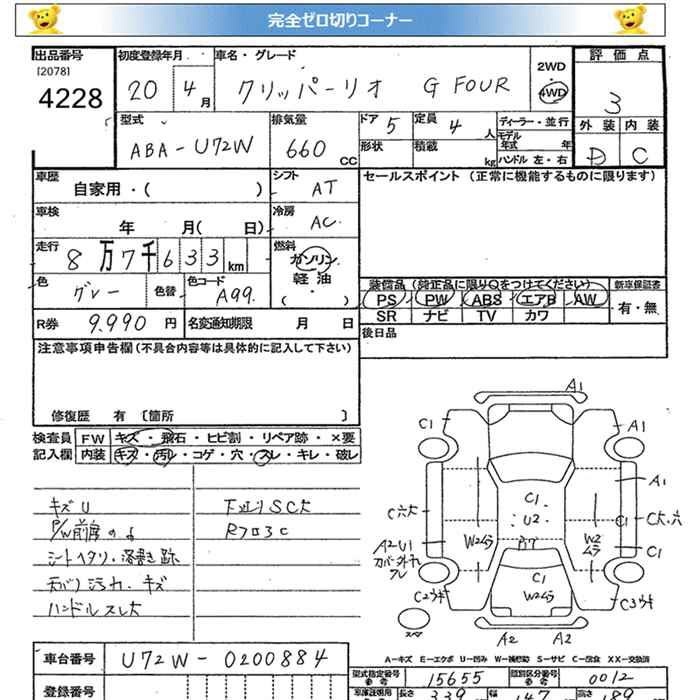 完全ゼロ切りコーナー
出品番号
[2078]
4228
初度登録年月
20 4月
車名・グレード
クリッパーリオ G FOUR
2WD
4WD
評価点
3
外装 内装
D C
型式
ABA-U72W
排気量
660 CC
ドア 5
定員 4 人
ディーラー・並行
モデル年式 年
形状
積載 kg
ハンドル 左・右
車歴
自家用・( )
シフト
AT
セールスポイント (正常に機能するものに限ります)
車検
年 月( 日)
冷房
AC
走行
8万7千633km
燃料
ガソリン
軽油
(・)
色
グレー
色替
色コード
A99
装備品 (純正品に限り○をつけてください)
PS PW ABS エアB AW
SR ナビ TV カワ
新車保証書
有・無
R券 9.990 円
名変通知期限 月 日
後日品
注意事項申告欄 (不具合内容等は具体的に記入して下さい)
修復歴 有 〔箇所 〕
検査員記入欄
FW キズ・飛石・ヒビ割・リペア跡・×要
内装 キズ・汚レ・コゲ・穴・スレ・キレ・破レ
キズU
シートヘタリ・落書き跡
天バリ汚れ・キズ
ハンドルスレ大
下廻りSC大
Rフロ3C
A1
C1
A1
A1
C六大
C1
U2
C1
C大六
W2ムラ
W2ムラ
A2U1
カバー外れ
クレ
C1
C1
W2ムラ
C2ウキ
C3ウキ
スペア
A2 A2
A-キズ E-エクボ U-凹み W-補修跡 S-サビ C-腐食 XX-交換済
車台番号 U72W-0200884
型式指定番号 15655
類別区分番号 0012
登録番号
長さ 339 幅 147 高さ 189